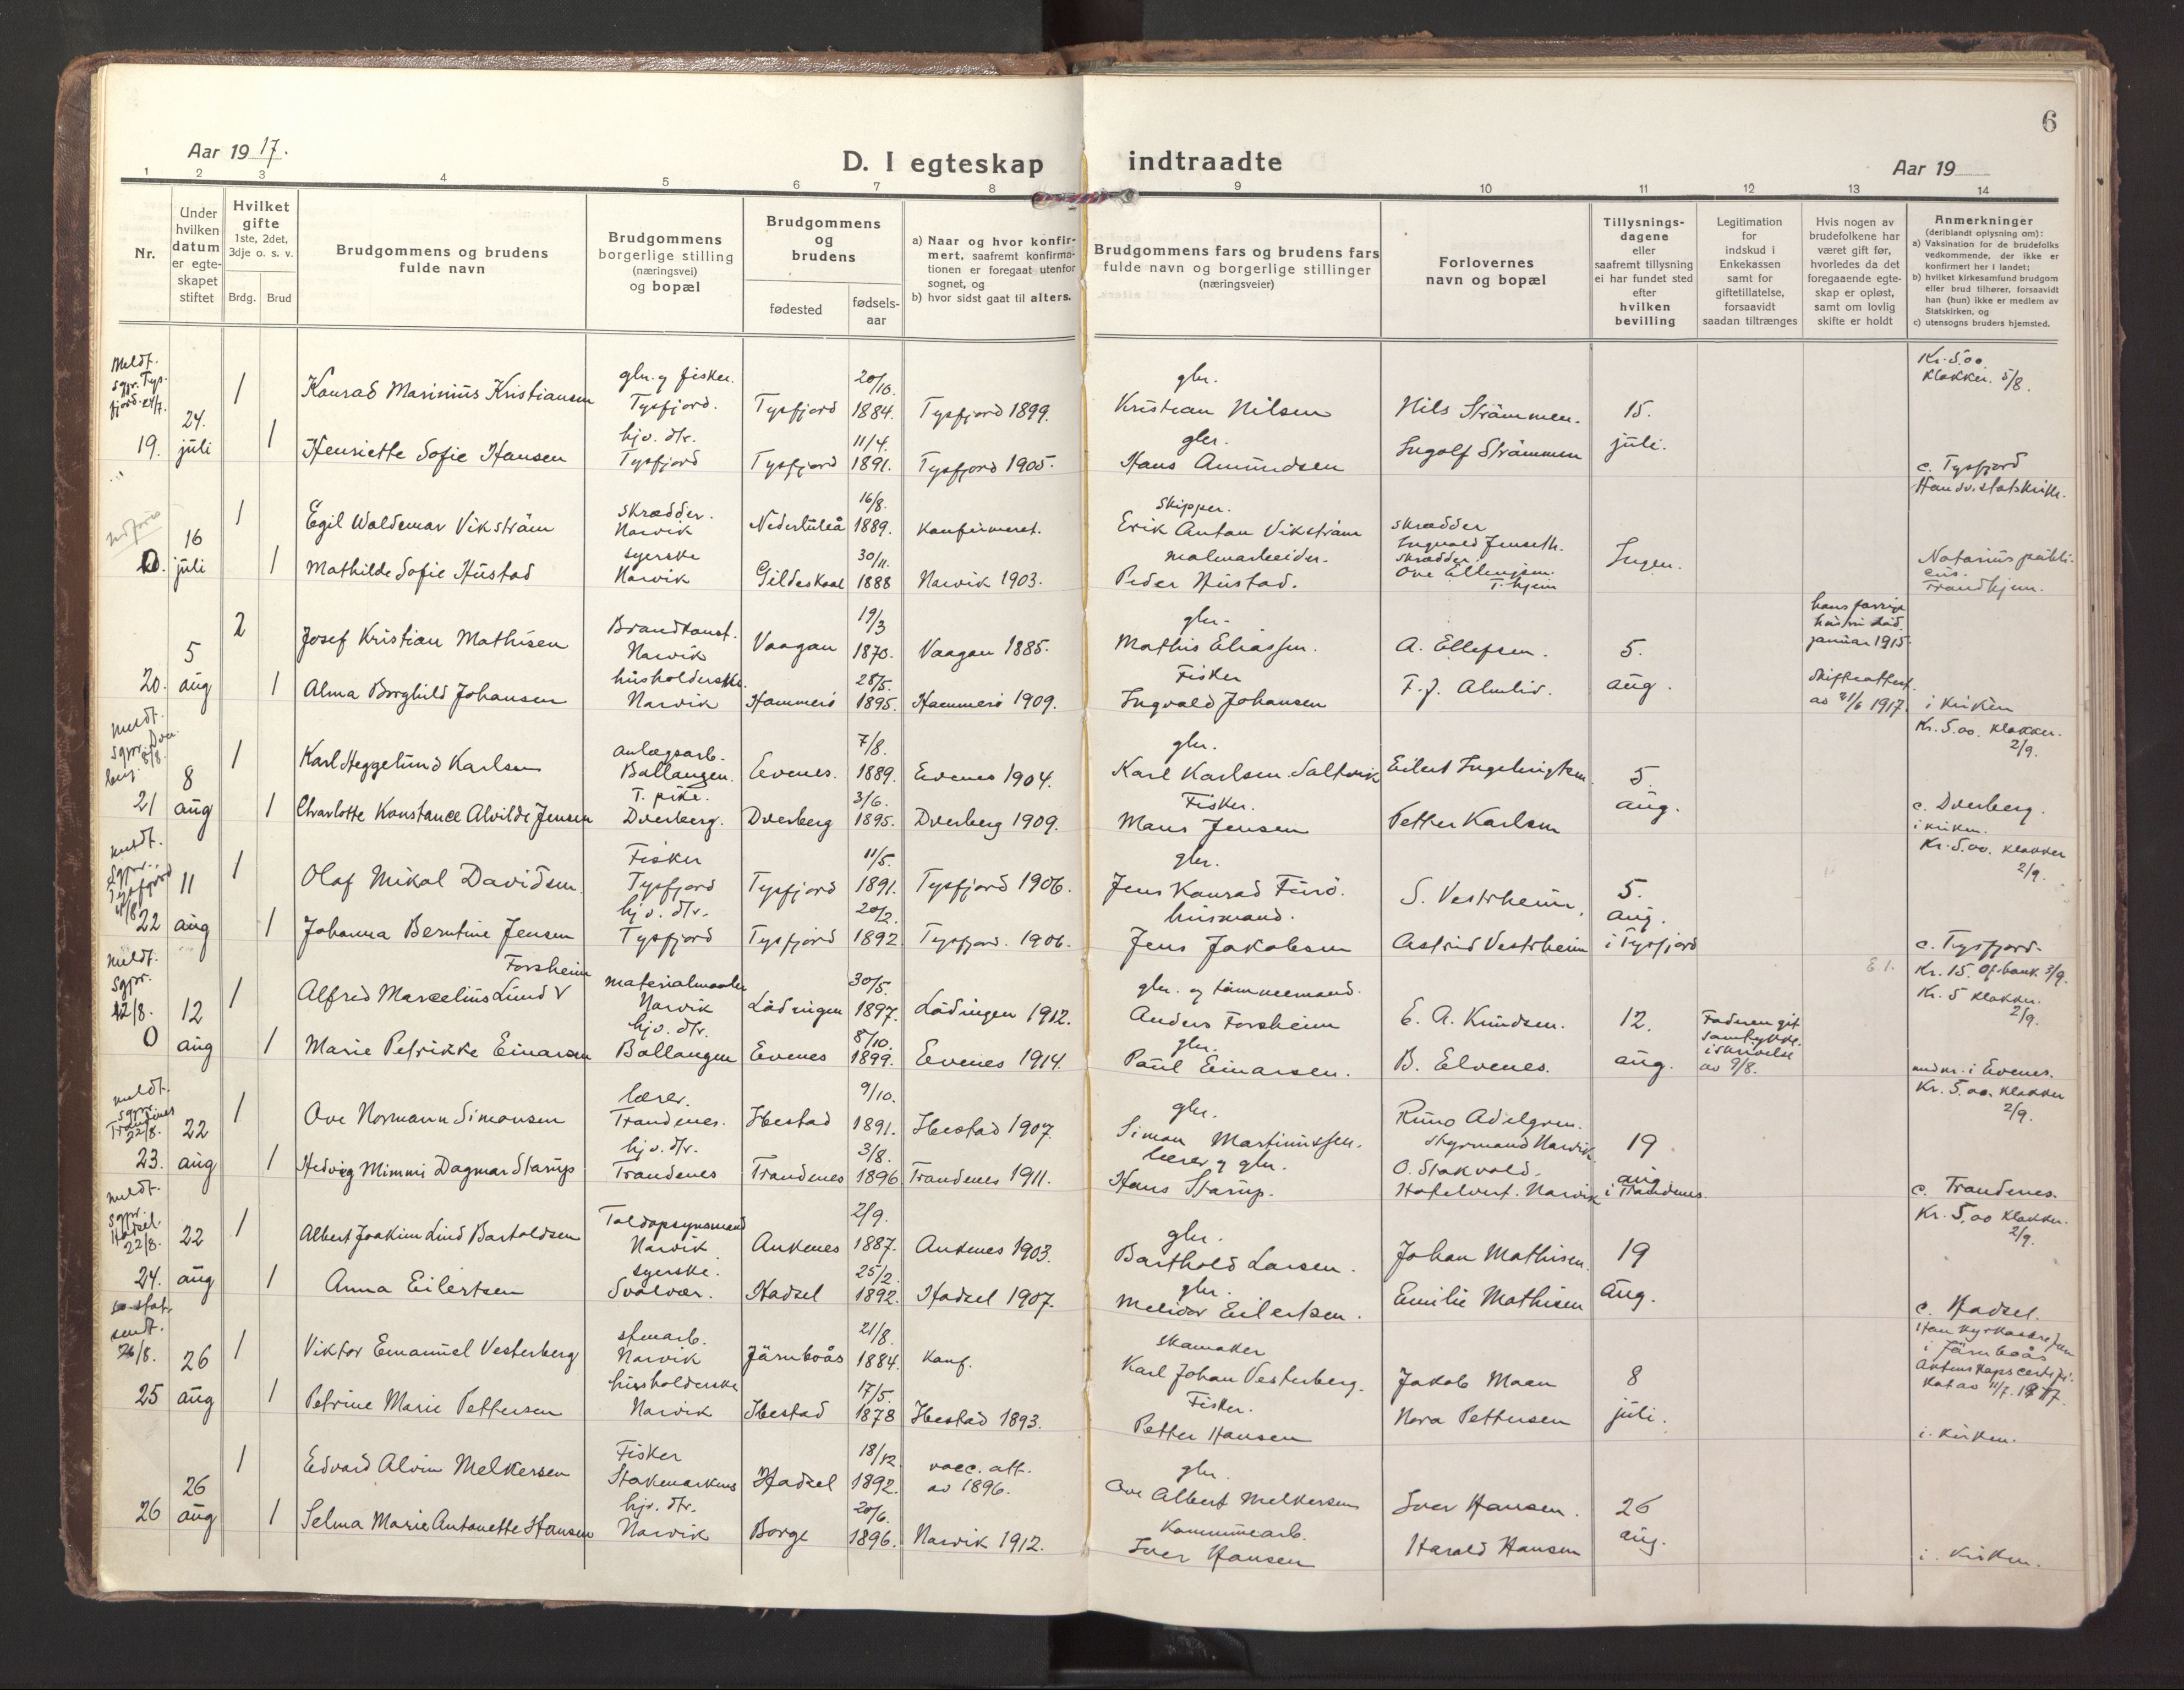 6
Aar 19 17.
D. I egteskap indtraadte
Aar 19
1 2 3 4 5 6 7 8 9 10 11 12 13 14
Nr.
Under hvilken datum er egteskapet stiftet
Hvilket gifte
1ste, 2det, 3dje o. s. v.
Brdg. Brud
Brudgommens og brudens fulde navn
Brudgommens borgerlige stilling (næringsvei) og bopæl
Brudgommens og brudens
fødested
fødselsaar
a) Naar og hvor konfirmert, saafremt konfirmationen er foregaat utenfor sognet, og
b) hvor sidst gaat til alters.
Brudgommens fars og brudens fars fulde navn og borgerlige stillinger (næringsveier)
Forlovernes navn og bopæl
Tillysningsdagene eller saafremt tillysning ei har fundet sted efter hvilken bevilling
Legitimation for indskud i Enkekassen samt for giftetillatelse, forsaavidt saadan tiltrænges
Hvis nogen av brudefolkene har været gift før, hvorledes da det foregaaende egteskap er opløst, samt om lovlig skifte er holdt
Anmerkninger (deriblandt oplysning om):
a) Vaksination for de brudefolks vedkommende, der ikke er konfirmert her i landet;
b) hvilket kirkesamfund brudgom eller brud tilhører, forsaavidt han (hun) ikke er medlem av Statskirken, og
c) utensogns bruders hjemsted.
Meldt. sgpr. Tysfjord 24/7.
19. 24. juli
1 Konrad Marinius Kristiansen gbr. og fisker. Tysfjord. Tysfjord 20/10 1884. Tysfjord 1899. gbr. Kristian Nilsen Nils Strämmen. 15. Kr. 5.00 klokker. 5/8.
1 Henriette Sofie Hansen hjv. dtr. Tysfjord Tysfjord 11/4. 1891. Tysfjord 1905. gbr. Hans Amundsen Ingolf Strämmen juli. c. Tysfjord
Han sv. statskirke.
0. 16 juli
1 Egil Waldemar Vikström skrædder. Narvik Nederluleå 16/8. 1889. Konfirmeret. Skipper. Erik Anton Vikström skrædder Ingvald Jenseth. Ingen.
1 Mathilde Sofie Hustad syerske Narvik Gildeskaal 30/11. 1888 Narvik 1903. malmarbeider. Peder Hustad. skrædder Ove Ellingsen. T.hjem Notarius publicus. Trondhjem.
20. 5 aug
2 Josef Kristian Mathisen Brandkonst. Narvik Vaagan 19/3 1870. Vaagan 1885. gbr. Mathis Eliassen. A. Ellefsen. 5. hans forrige hustru død januar 1915.
1 Alma Borghild Johansen husholderske. Narvik Hammerö 28/5. 1895. Hammerö 1909. Fisker Ingvald Johansen F. J. Almlid. aug. Skifteattest av 21/6 1917. i kirken
meldt. sgpr. Dverberg. 8/8.
21 8 aug
1 Karl Heggelund Karlsen anlægsarb. Ballangen. Evenes. 7/8. 1889. Evenes 1904. gbr. Karl Karlsen. Saltvik Eilert Ingebrigtsen. 5. Kr. 5.00. klokker. 2/9.
1 Charlotte Konstance Alvilde Jensen T. pike. Dverberg. Dverberg 3/6. 1895. Dverberg 1909. Fisker. Mons Jensen Petter Karlsen aug. c. Dverberg. i kirken.
meldt. Sgpr. Tysfjord 11/8
22 11 aug
1 Olaf Mikal Davidsen. Fisker Tysfjord Tysfjord 11/5. 1891. Tysfjord 1906. gbr. Jens Konrad Furö. S. Vestrheim. 5. Kr. 5.00. klokker 2/9.
1 Johanna Berntine Jensen hjv. dtr. Tysfjord Tysfjord 20/2. 1892 Tysfjord. 1906. husmand. Jens Jakobsen Astrid Vestrheim aug. i Tysfjord c. Tysfjord.
meldt. sgpr. 12/8.
0 12 aug
1 Alfred Marcelius Lund V Forsheim materialmaaler Narvik Lödingen 30/5. 1897. Lödingen 1912. gbr. og tömmermand. Anders Forsheim E. A. Knudsen. 12. E 1. Kr. 15. Of. bank. 3/9. Kr. 5 klokker. 2/9.
1 Marie Petrikke Einarsen hjv. dtr. Ballangen Evenes 8/10. 1899. Evenes 1914. gbr. Paul Einarsen. B. Elvenes. aug. Faderen git samtykke i skrivelse av 9/8. i Evenes.
meldt. sgpr. Trandenes 22/8.
23. 22 aug
1 Ove Normann Simonsen lærer. Trandenes. Ibestad 9/10. 1891. Ibestad 1907. gbr. Simon Martinussen. Runo Adelgren. Styrmand Narvik. 19 Kr. 5.00. klokker 2/9.
1 Hedvig Mimmi Dagmar Starup hjv. dtr. Trandenes Trandenes 3/8. 1896 Trandenes 1911. lærer og gbr. Hans Starup. O. Stokvold. Hotelvert. Narvik aug. i Trandenes. c. Trandenes.
meldt. sgpr. Hadsel. 22/8.
24. 22 aug
1 Albert Joakim Lind Bartoldsen Toldopsynsmand Narvik Ankenes 2/9. 1887. Ankenes 1903. gbr. Barthold Larsen. Johan Mathisen. 19 Kr. 5,00 klokker. 2/9.
1 Anna Eilertsen syerske. Svolvær. Hadsel 25/2. 1892. Hadsel 1907. gbr. Melidor Eilertsen. Emilie Mathisen Aug. c. Hadsel.
sendt. 26/8.
25 26 aug
1 Viktor Emanuel Vesterberg stenarb. Narvik Järnboås 21/8. 1884. Konf. skomaker Karl Johan Vesterberg. Jakob Moen 8 i Järnboås Aktenskapscertifikat av 11/7. 1917.
1 Petrine Marie Pettersen husholderske Narvik Ibestad 17/5. 1878 Ibestad 1893. Fisker. Petter Hansen Nora Pettersen juli. i. kirken.
26 26 aug
1 Edvard Alvin Melkersen Fisker Stokmarknes Hadsel 18/12 1892. vacc. att. av 1896. gbr. Ove Albert Melkersen Iver Hansen. 26
1 Selma Marie Antonette Hansen hjv. dtr. Narvik Borge 20/6. 1896. Narvik 1912. Kommunearb. Iver Hansen Harald Hansen aug. i. kirken.